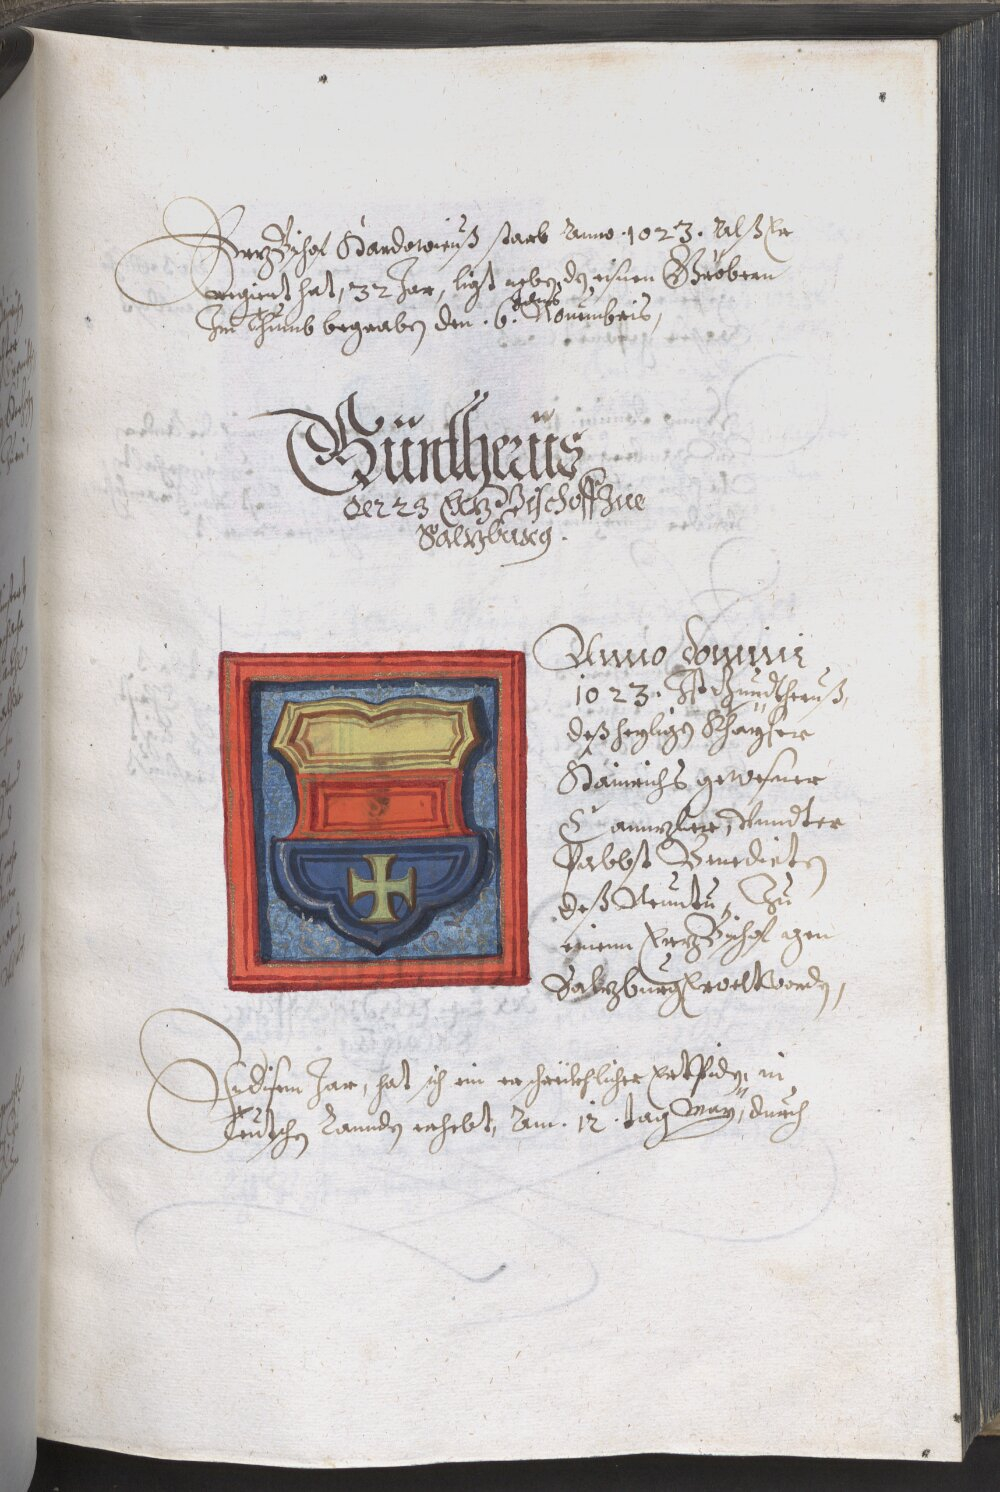 ErzBischof Hardowicuß starb Anno .1023. Alß Er
regiert hat, 32 Jar, ligt neben den eisnen Gröbern
Im Thumb begraben den .6. Idus Nouembris,
Güntherüs
der 23 ErzBischoff Zue
Salzburg.
Anno Domini
1023. Ist Gündtheruß,
deß heyligen Khayser
Hainrichs gewesner
Canntzler, Vnndter
Pabbst Benedicten
deß Neuntn, Zu
einem ErzBischof gen
Saltzburg Erwelt worden,
In disem Jar, hat sich ein erschröckhlicher Erdpiden, in
Teutschen Lannden erhebt, Am .12. tag May, durch